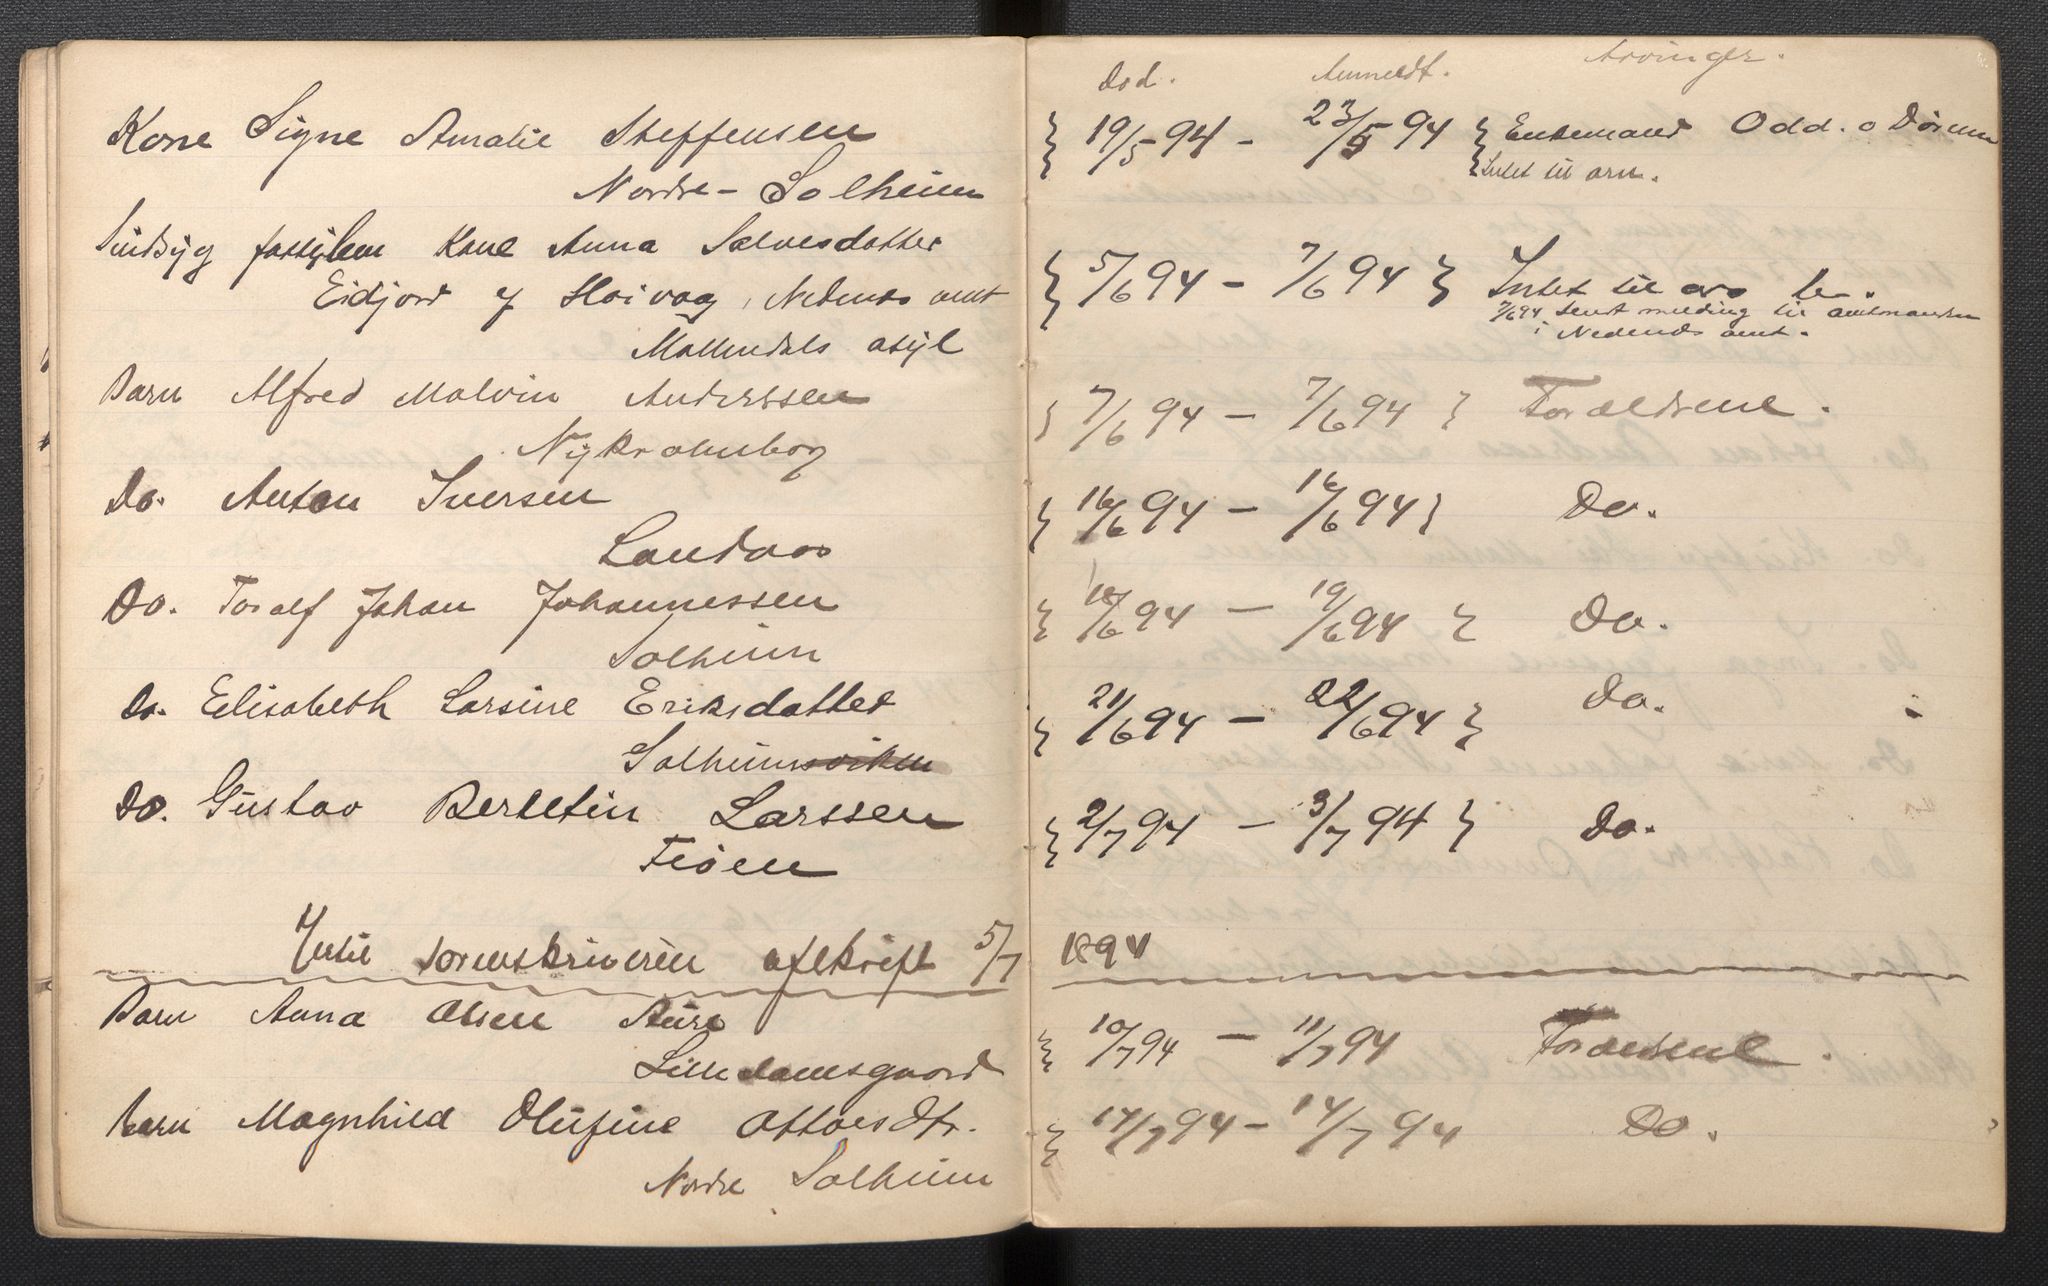 Død. Anmeldt. Arvinger.
Kone Signe Amalie Steffensen } 19/5 94 - 23/5 94 } Enkemand Odd. o Børnene
Nordre - Solheim } Intet til arv.
Sindsyg fattiglem Kone Anna Salvesdatter } 5/6 94 - 7/6 94 } Intet til arv
Eidjord af Høivaag, Nedenes amt 7/6 94 sendt melding til amtmanden
Møllendals asyl i Nedenes amt.
Barn Alfred Malvin Anderssen } 7/6 94 - 7/6 94 } Forældrene.
Nykrohnborg
Do. Anton Iversen } 16/6 94 - 16/6 94 } Do.
Landaas
Do. Toralf Johan Johannessen } 18/6 94 - 19/6 94 } Do.
Solheim
Do. Elisabeth Larsine Eriksdatter } 21/6 94 - 22/6 94 } Do.
Solheimsviken
Do. Gustav Berntin Larssen } 2/7 94 - 3/7 94 } Do.
Fløen
Hertil sorenskriveren afskrift 5/7 1894
Barn Anna Olsen } 10/7 94 - 11/7 94 Forældrene.
Lille damsgaard
Barn Magnhild Olufine Ottoesdtr. } 14/7 94 - 14/7 94 Do.
Nordre Solheim